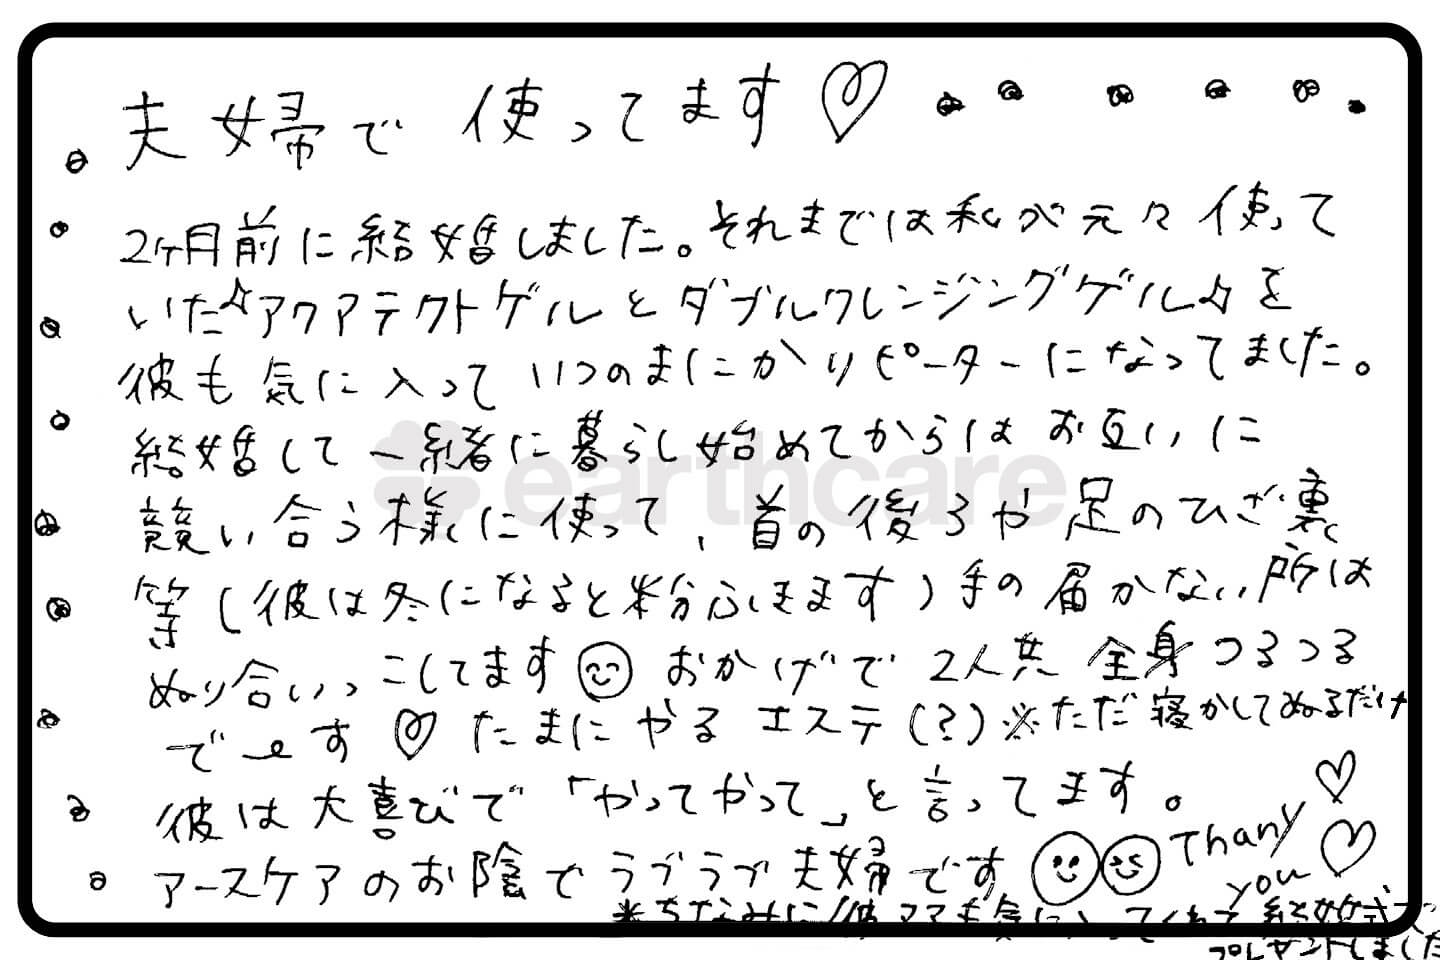 夫婦で 使ってます♡
2ヶ月前に結婚しました。それまでは私が元々使って
いた☆アクアテクトゲルとダブルクレンジングゲル☆を
彼も気に入って いつのまにかリピーターになってました。
結婚して一緒に暮らし始めてからはお互いに
earthcare
競い合う様に使って、首の後ろや足のひざ裏
等(彼は冬になると半分ふきます)手の届かない所は
ぬり合いっこしてます おかげで2人共 全身つるつる
で〜す♡たまにやるエステ(?)※ただ寝かしてぬるだけ
彼は大喜びで「やってやって」と言ってます。
アースケアのお陰でラブラブ夫婦です Thany
you
※ちなみに彼ママも気に入ってくれて 結婚式で
プレゼントしました